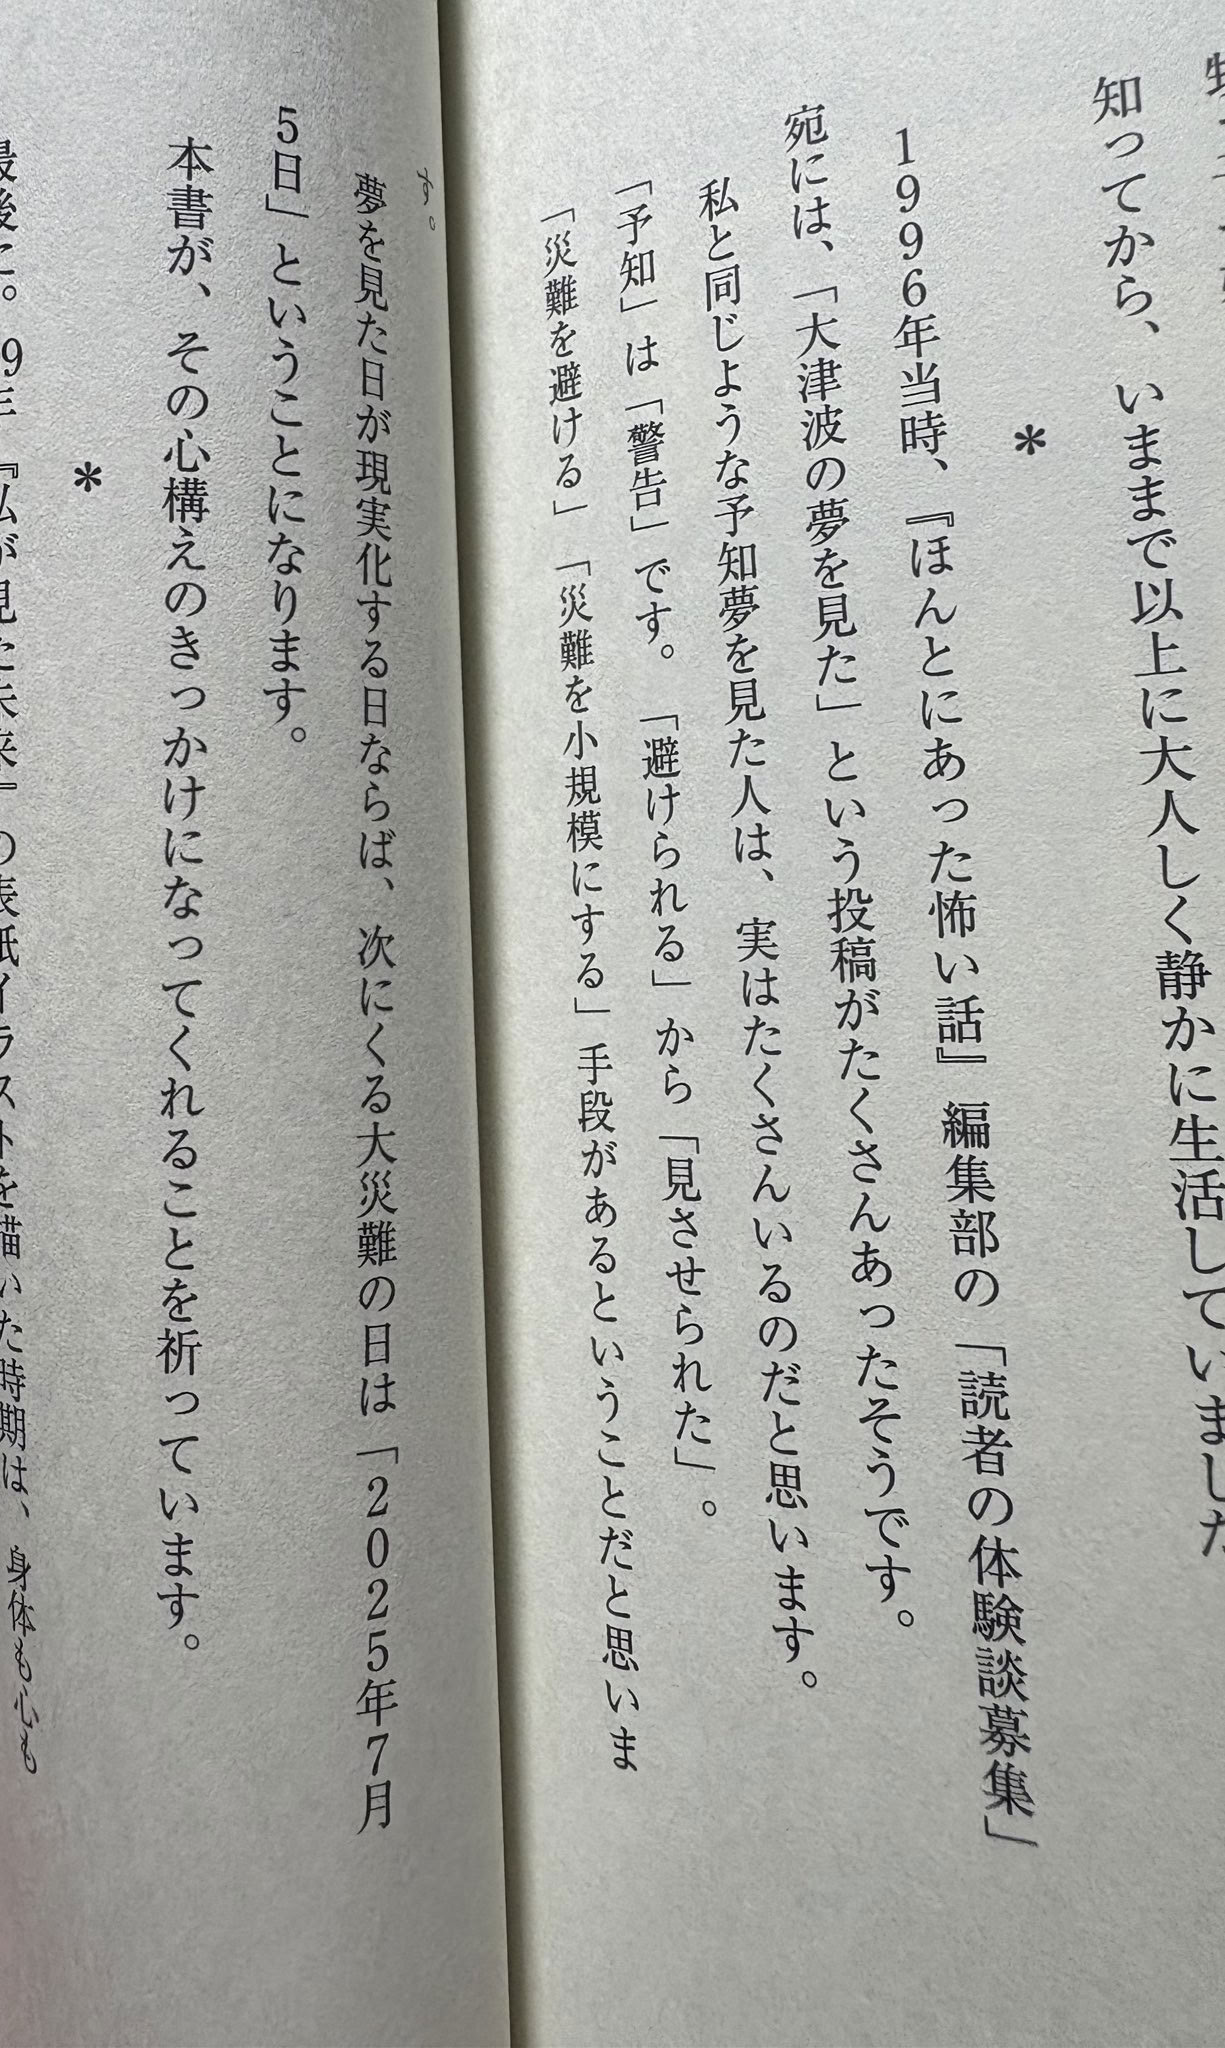 知ってから、いままで以上に大人しく静かに生活していました
＊
1996年当時、『ほんとにあった怖い話』編集部の「読者の体験談募集」
宛には、「大津波の夢を見た」という投稿がたくさんあったそうです。
私と同じような予知夢を見た人は、実はたくさんいるのだと思います。
「予知」は「警告」です。「避けられる」から「見させられた」。
「災難を避ける」「災難を小規模にする」手段があるということだと思いま
す。
夢を見た日が現実化する日ならば、次にくる大災難の日は「2025年7月
5日」ということになります。
本書が、その心構えのきっかけになってくれることを祈っています。
＊
最後に。『私が見た未来』の表紙イラストを描いた時期は、身体も心も